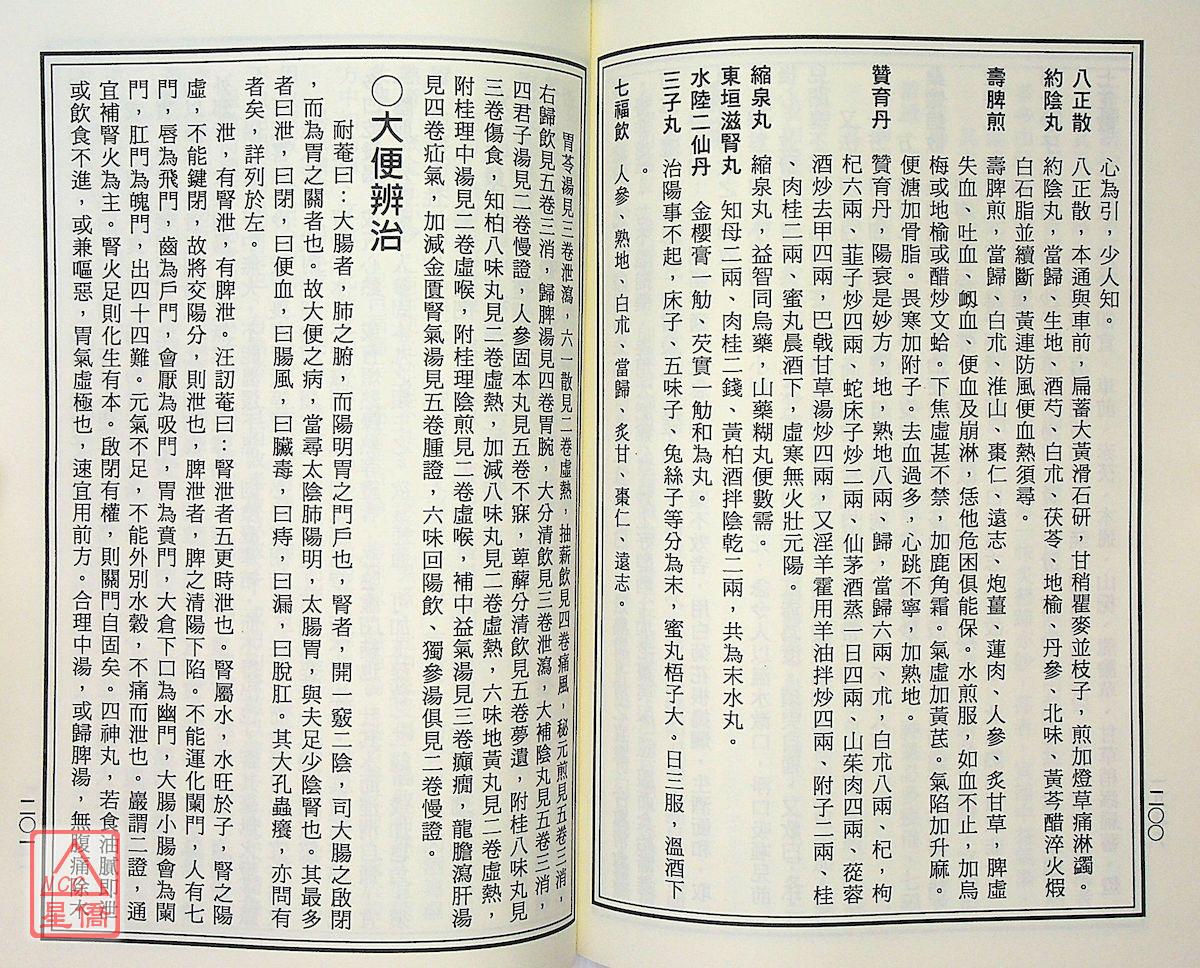 心為引，少人知。
八正散　八正散，本通與車前，扁蓄大黃滑石研，甘稍瞿麥並枝子，煎加燈草痛淋蠲。
約陰丸　約陰丸，當歸、生地、酒芍、白朮、茯苓、地榆、丹參、北味、黃芩醋淬火煆
白石脂並續斷，黃連防風便血熱須尋。
壽脾煎　壽脾煎，當歸、白朮、淮山、棗仁、遠志、炮薑、蓮肉、人參、炙甘草，脾虛
失血、吐血、衂血、便血及崩淋，恁他危困俱能保。水煎服，如血不止，加烏
梅或地榆或醋炒文蛤。下焦虛甚不禁，加鹿角霜。氣虛加黃芪。氣陷加升麻。
便溏加骨脂。畏寒加附子。去血過多，心跳不寧，加熟地。
贊育丹　贊育丹，陽衰是妙方，地，熟地八兩、歸，當歸六兩、朮，白朮八兩、杞，枸
杞六兩、韮子炒四兩、蛇床子炒二兩、仙茅酒蒸一日四兩、山茱肉四兩、蓯蓉
酒炒去甲四兩，巴戟甘草湯炒四兩，又淫羊霍用羊油拌炒四兩、附子二兩、桂
、肉桂二兩、蜜丸晨酒下，虛寒無火壯元陽。
縮泉丸　縮泉丸，益智同烏藥，山藥糊丸便數需。
東垣滋腎丸　知母二兩、肉桂二錢、黃柏酒拌陰乾二兩，共為末水丸。
水陸二仙丹　金櫻膏一觔、芡實一觔和為丸。
三子丸　治陽事不起，床子、五味子、兔絲子等分為末，蜜丸梧子大。日三服，溫酒下
。
七福飲　人參、熟地、白朮、當歸、炙甘、棗仁、遠志。
二〇〇
胃苓湯見三卷泄瀉，六一散見二卷虛熱，抽薪飲見四卷痛風，秘元煎見五卷三消，
右歸飲見五卷三消，歸脾湯見四卷胃腕，大分清飲見三卷泄瀉，大補陰丸見五卷三消，
四君子湯見二卷慢證，人參固本丸見五卷不寐，萆薢分清飲見五卷夢遺，附桂八味丸見
三卷傷食，知柏八味丸見二卷虛熱，加減八味丸見二卷虛熱，六味地黃丸見二卷虛熱，
附桂理中湯見二卷虛喉，附桂理陰煎見二卷虛喉，補中益氣湯見三卷癲癇，龍膽瀉肝湯
見四卷疝氣，加減金匱腎氣湯見五卷腫證，六味回陽飲、獨參湯俱見二卷慢證。
〇大便辨治
耐菴曰：大腸者，肺之腑，而陽明胃之門戶也，腎者，開一竅二陰，司大腸之啟閉
，而為胃之關者也。故大便之病，當尋太陰肺陽明，太腸胃，與夫足少陰腎也。其最多
者曰泄，曰閉，曰便血，曰腸風，曰臟毒，曰痔，曰漏，曰脫肛。其大孔蟲癢，亦問有
者矣，詳列於左。
泄，有腎泄，有脾泄。汪訒菴曰：腎泄者五更時泄也。腎屬水，水旺於子，腎之陽
虛，不能鍵閉，故將交陽分，則泄也，脾泄者，脾之清陽下陷。不能運化闌門，人有七
門，唇為飛門，齒為戶門，會厭為吸門，胃為賁門，大倉下口為幽門，大腸小腸會為闌
門，肛門為魄門，出四十四難。元氣不足，不能外別水穀，不痛而泄也。巖謂二證，通
宜補腎火為主。腎火足則化生有本。啟閉有權，則關門自固矣。四神丸，若食油膩即泄
或飲食不進，或兼嘔惡，胃氣虛極也，速宜用前方。合理中湯，或歸脾湯，無腹痛除木
二〇一
NCC
星僑